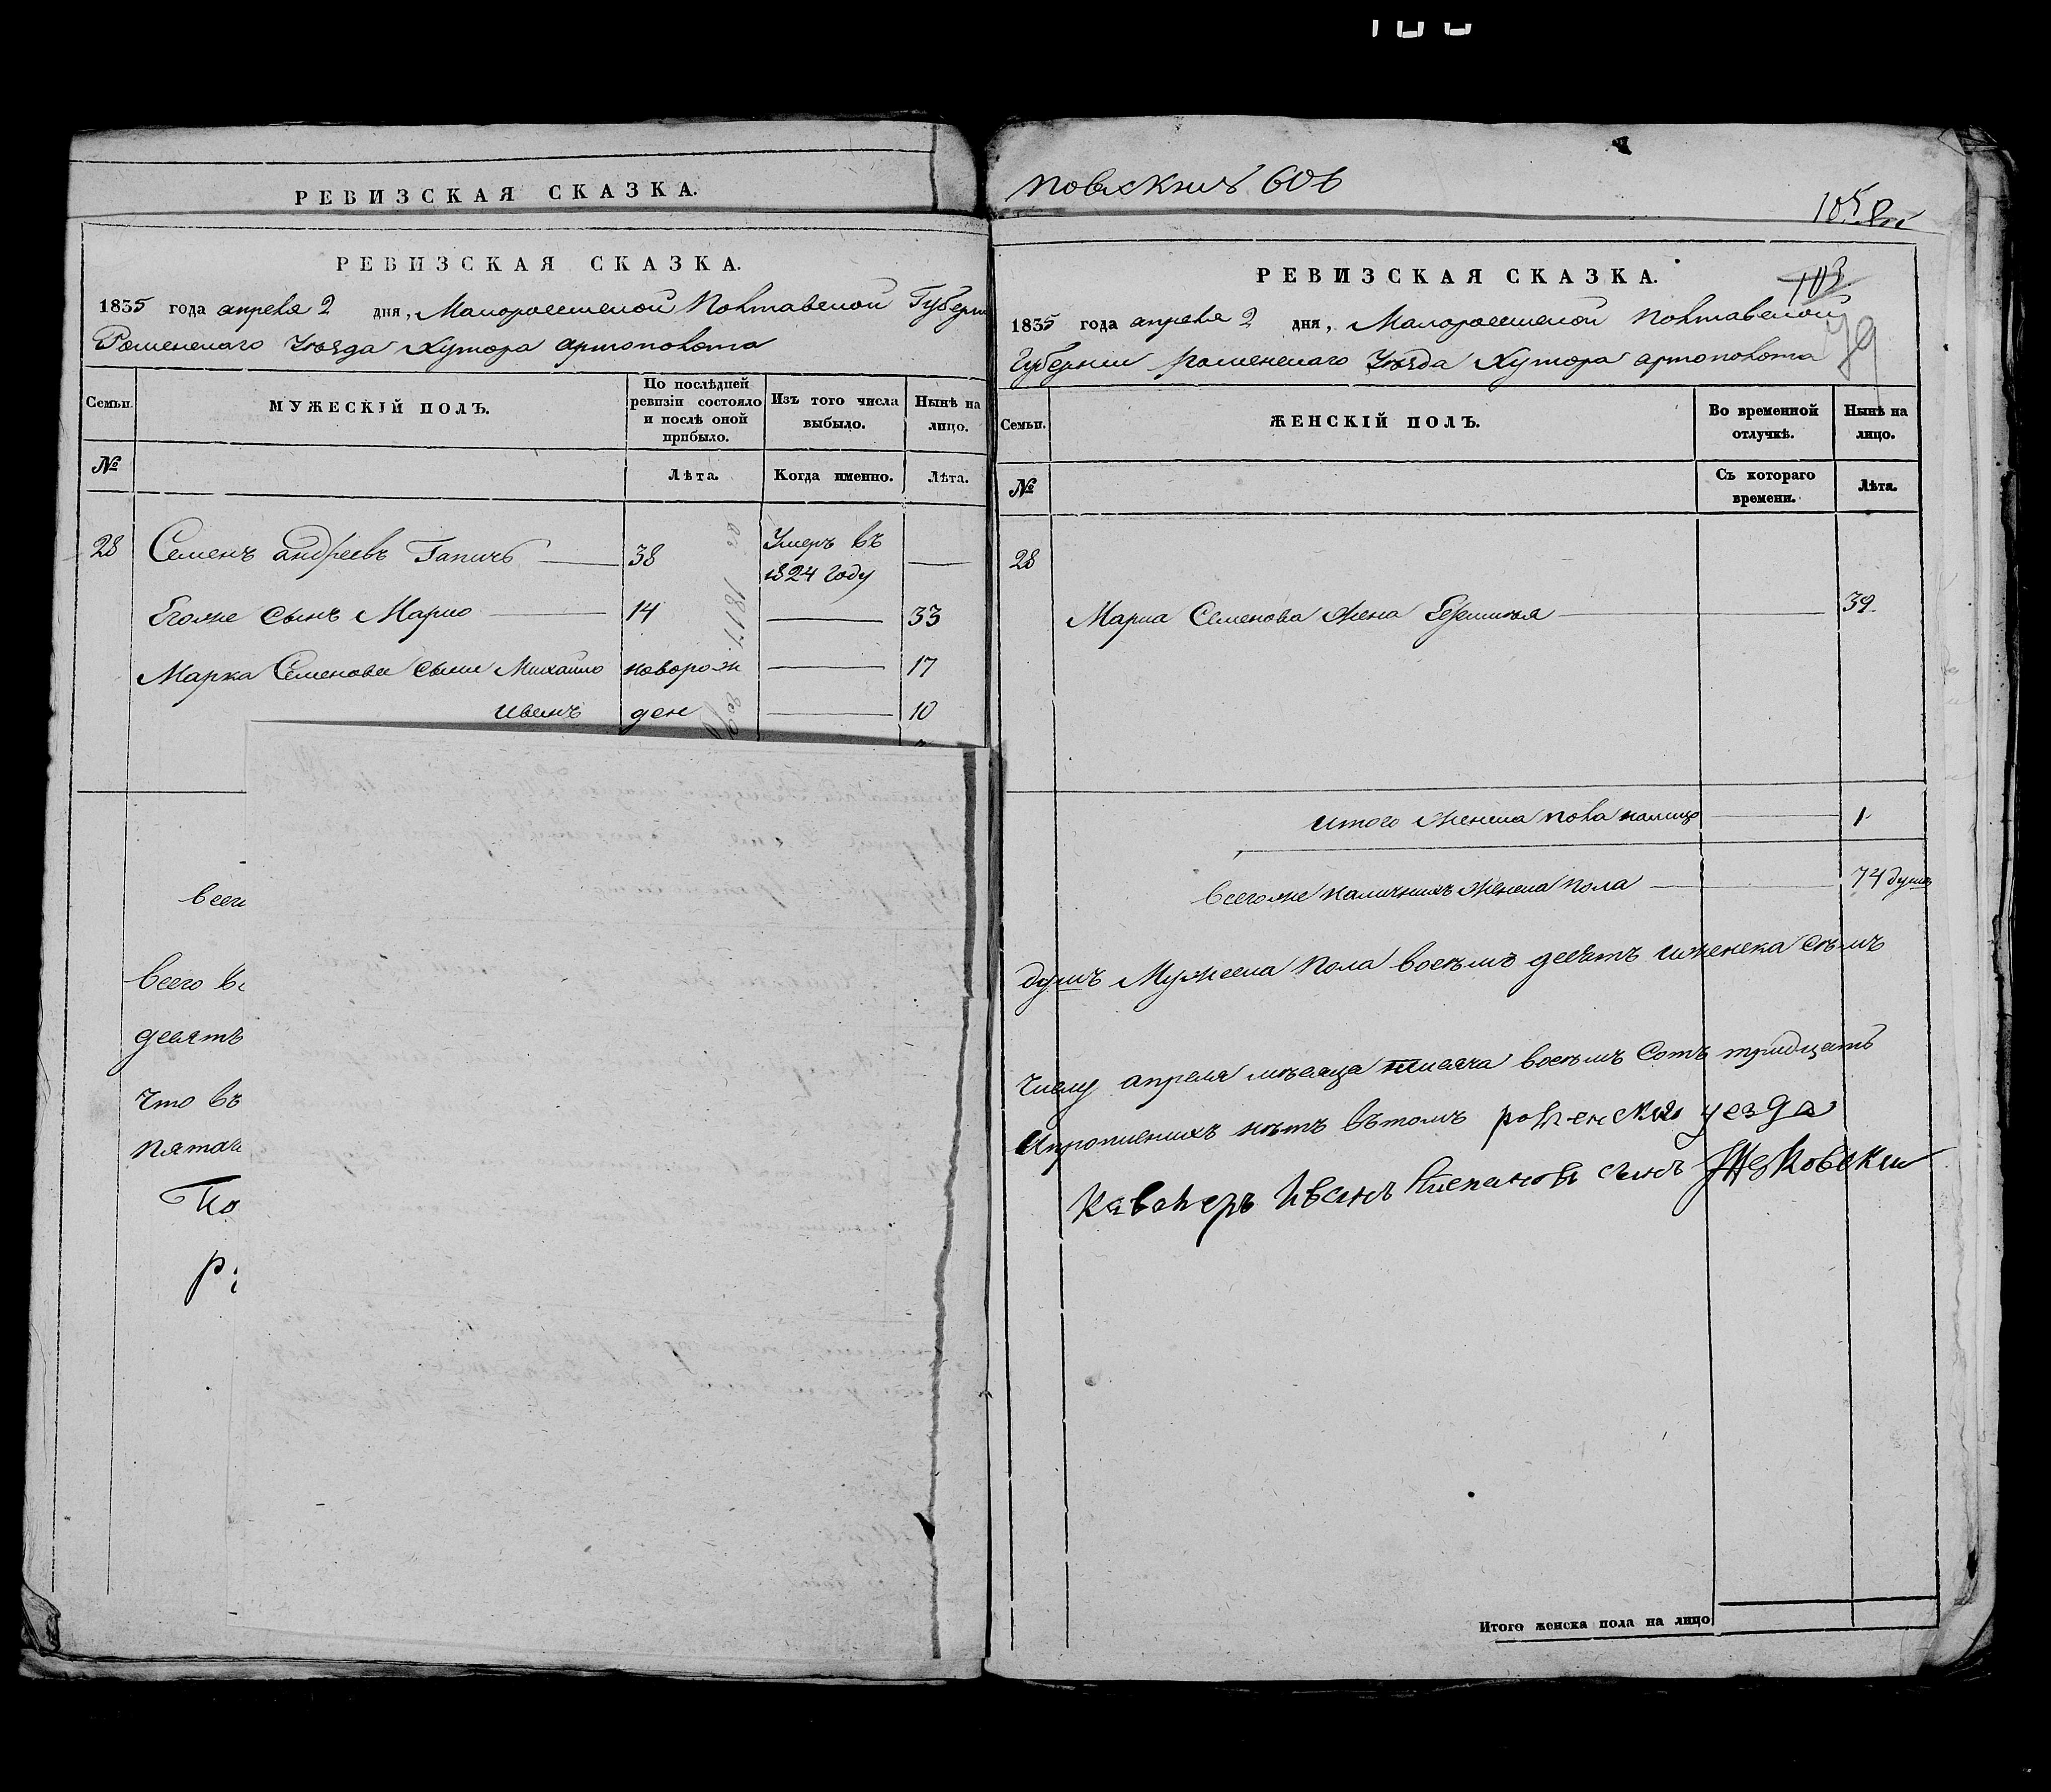 РЕВИЗСКАЯ СКАЗКА.
РЕВИЗСКАЯ СКАЗКА.
1835 года апреля 2 дня, Малоросийской Полтавской Губерн
Роменскаго Уѣзда Хутора артополота
Семьи.
МУЖЕСКІЙ ПОЛЪ.
По послѣдней ревизіи состояло и послѣ оной прибыло.
Изъ того числа выбыло.
Нынѣ на лицо.
№
Лѣта.
Когда именно.
Лѣта.
28 Семенъ андреевъ Гапичъ 38 Умеръ въ 1824 году
Егоже сынъ Марко 14 33
Марка Семенова сыни Михайло новорож 17
иванъ ден 10
всего
Всего
девять
что въ
По
105
103
79
РЕВИЗСКАЯ СКАЗКА.
1835 года апреля 2 дня, Малоросийской Полтавской
Губернии роменскаго Уѣзда Хутора артополота
Семьи.
ЖЕНСКІЙ ПОЛЪ.
Во временной отлучкѣ.
Нынѣ на лицо.
№
Съ котораго времени.
Лѣта.
28
Марка Семенова жена 39
итого женска пола налицо 1
Всегоже наличнихъ женска пола 74 душъ
душъ Мужеска пола восѣмъ десятъ иженска сѣмъ
Числу апреля мѣсяца тисяча восѣмъ сотъ тридцать
ипрописнихъ нѣтъ вътомъ роменскаго уезда
Кавалеръ Иванъ сынъ
Итого женска пола на лицо